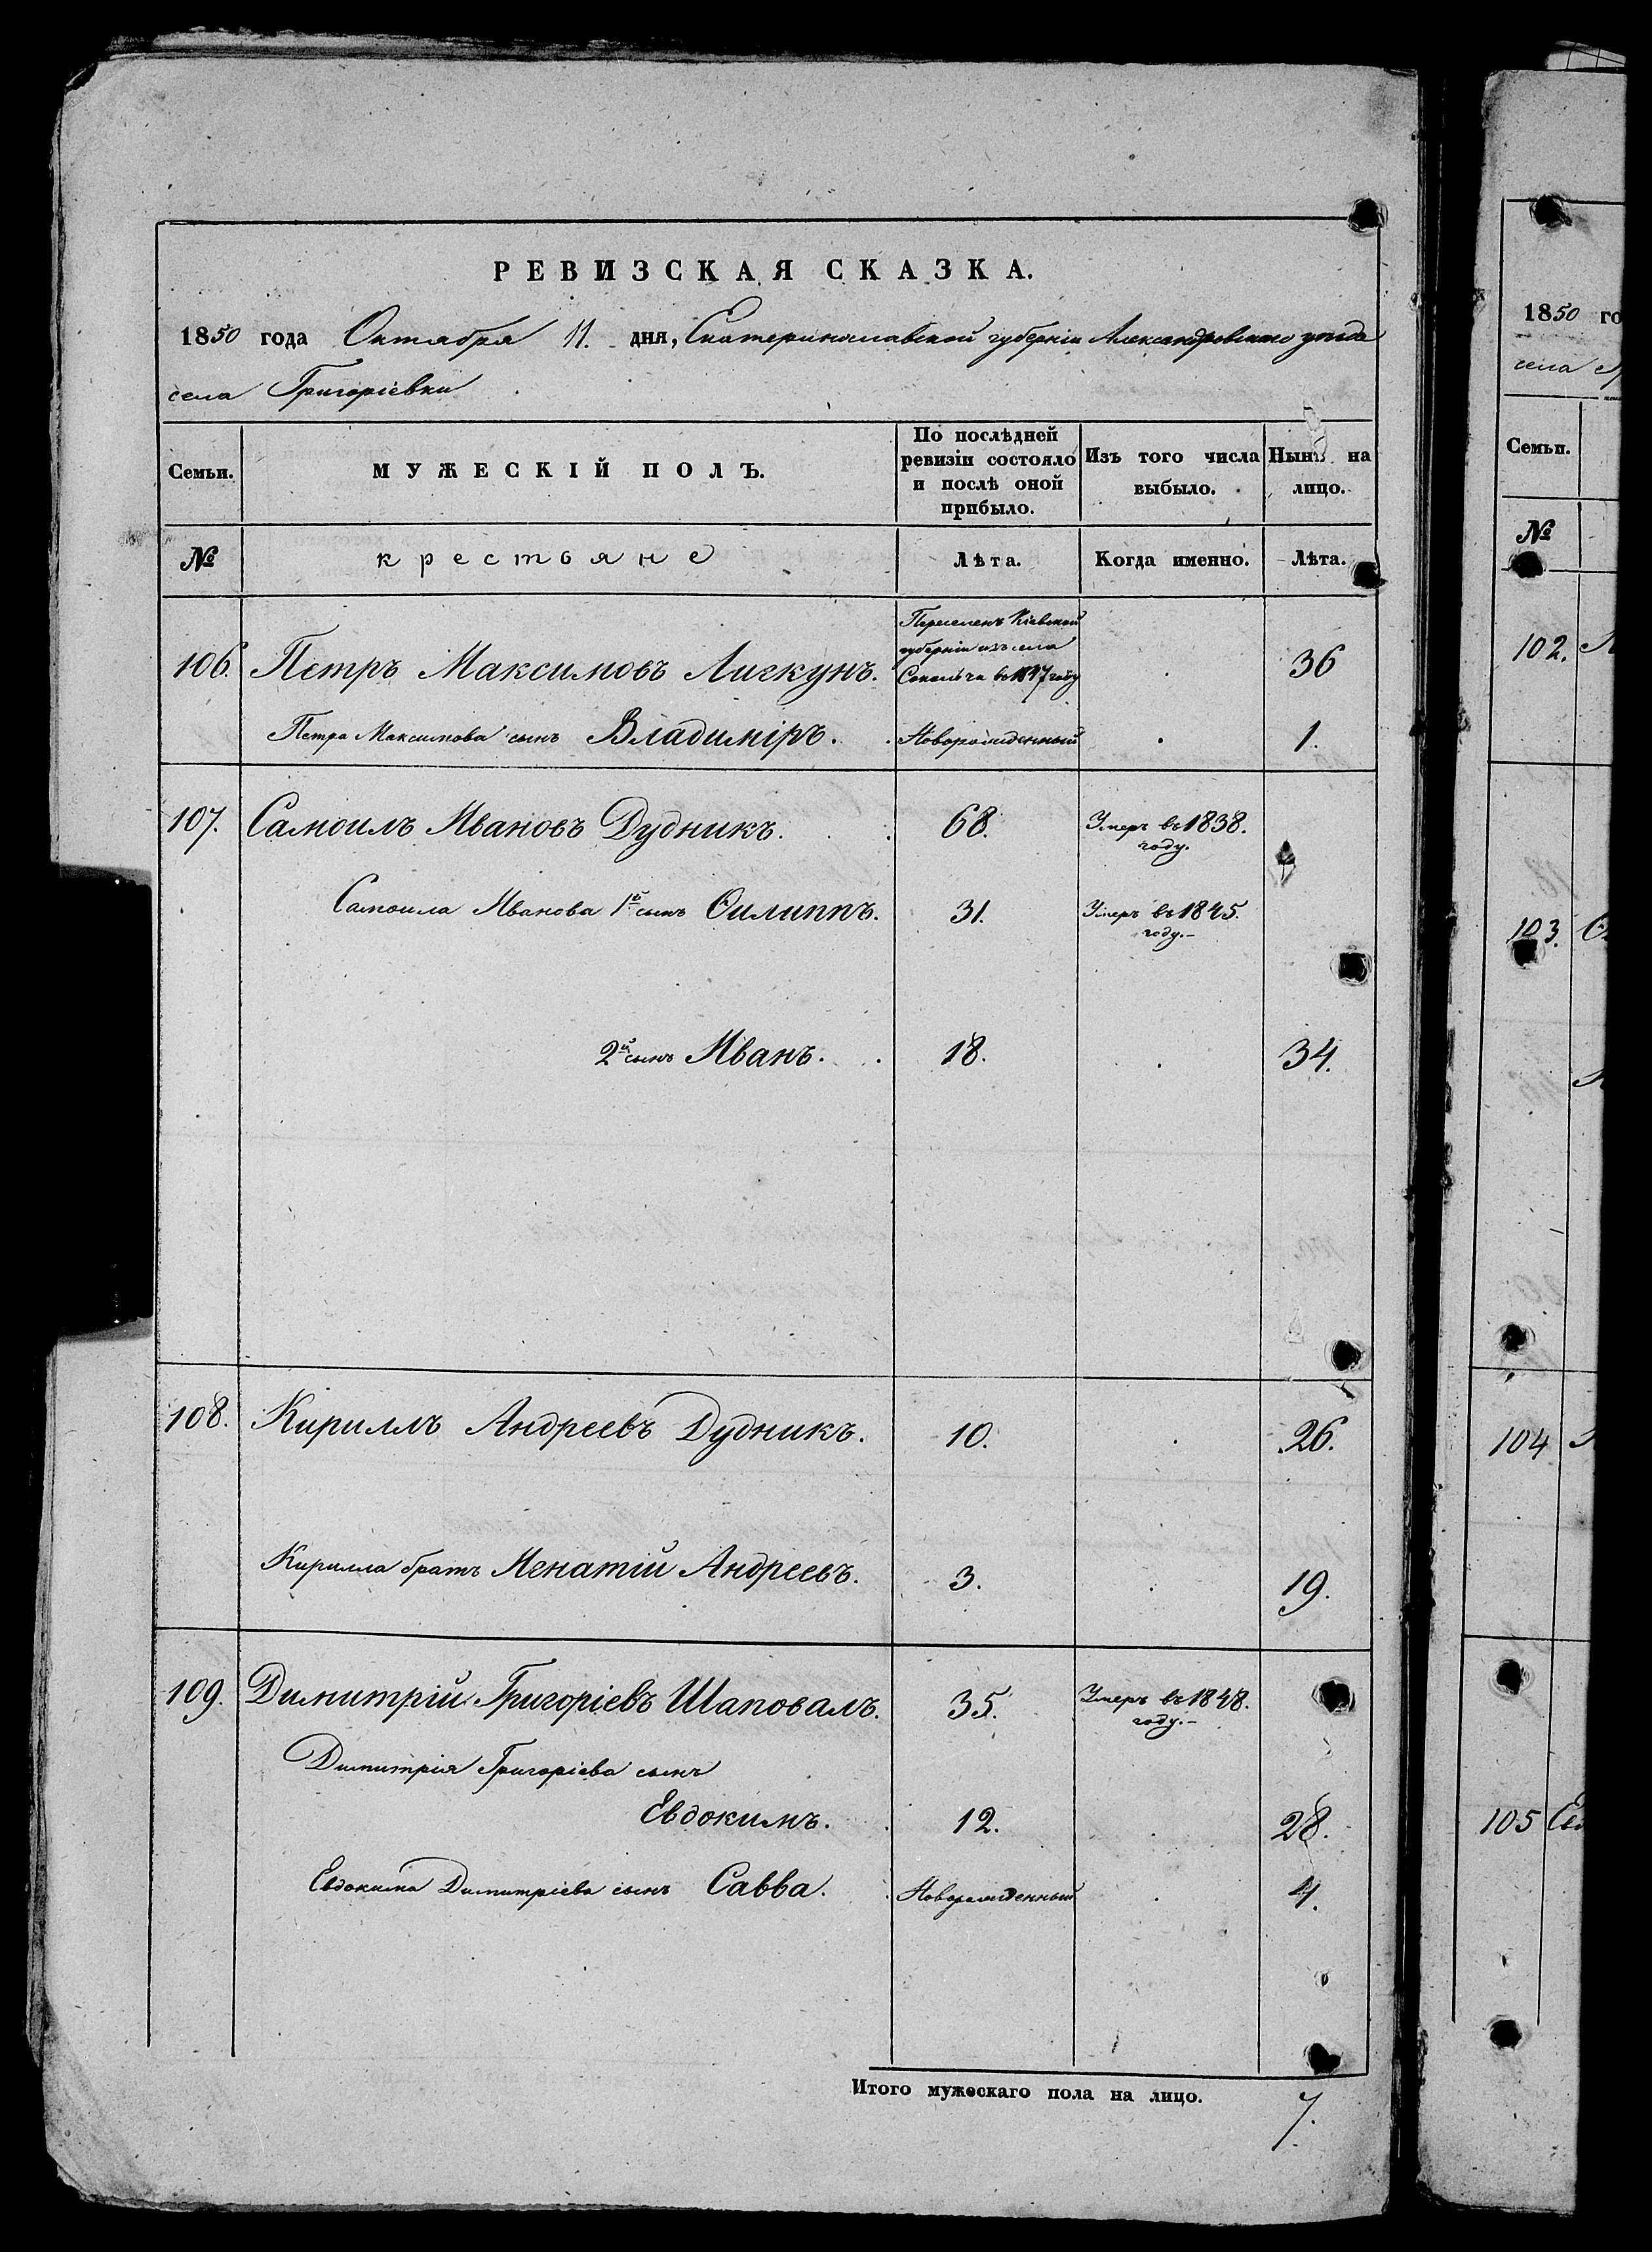 РЕВИЗСКАЯ СКАЗКА.
1850 года Октября 11. дня, Екатеринославской губерніи Александровскаго уѣзда
села Григоріевки
Семьи.
МУЖЕСКІЙ ПОЛЪ.
По послѣдней ревизіи состояло и послѣ оной прибыло.
Изъ того числа выбыло.
Нынѣ на лицо.
№
крестьяне
Лѣта.
Когда именно.
Лѣта.
Переселенъ Кіевской
губерніи изъ села
106. Петръ Максимовъ Лискунъ. въ 1847 году 36
Петра Максимова сынъ Владиміръ. Новорожденный 1.
107. Самоилъ Ивановъ Дудникъ. 68. Умеръ въ 1838. году.
Самоила Иванова 1й сынъ Ѳилиппъ. 31. Умеръ въ 1845. году.-
2й сынъ Иванъ. 18. 34.
108. Кириллъ Андреевъ Дудникъ. 10. 26.
Кирилла братъ Игнатій Андреевъ. 3. 19.
109. Димитрій Григоріевъ Шаповалъ. 35. Умеръ въ 1848. году.-
Димитрія Григоріева сынъ
Евдокимъ. 12. 28.
Евдокима Димитріева сынъ Савва. Новорожденный 4.
Итого мужескаго пола на лицо. 7.
1850 го
села
Семьи.
№
102.
103.
104
105 Евд